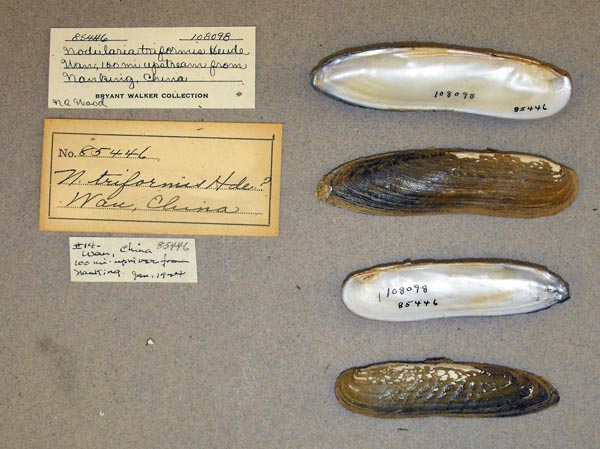 85446 108098
Nodularia triformis Heude
Wan, 100 mi upstream from
Nanking, China
BRYANT WALKER COLLECTION
N.A. Wood
No. 85446
N. triformis Hde.?
Wau, China
#14-
Wan, China 85446
100 mi. upriver from
Nanking. Jan. 1924
108098
85446
108098
85446